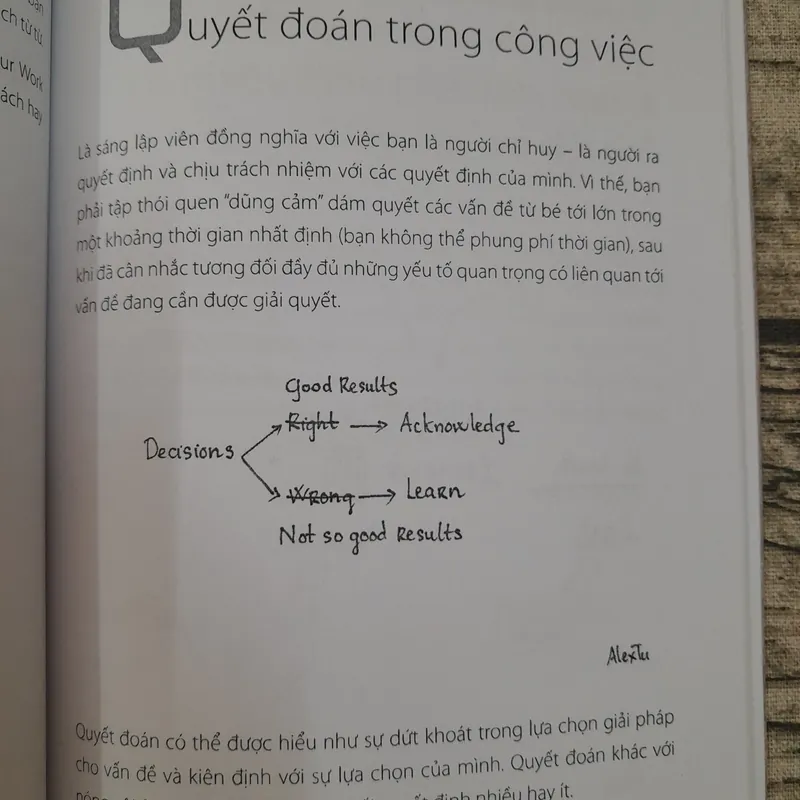 ch từ từ
ur Work
ách hay
Quyết đoán trong công việc
Là sáng lập viên đồng nghĩa với việc bạn là người chỉ huy – là người ra
quyết định và chịu trách nhiệm với các quyết định của mình. Vì thế, bạn
phải tập thói quen “dũng cảm” dám quyết các vấn đề từ bé tới lớn trong
một khoảng thời gian nhất định (bạn không thể phung phí thời gian), sau
khi đã cân nhắc tương đối đầy đủ những yếu tố quan trọng có liên quan tới
vấn đề đang cần được giải quyết.
Good Results
Right → Acknowledge
Decisions
Wrong → Learn
Not so good Results
AlexTu
Quyết đoán có thể được hiểu như sự dứt khoát trong lựa chọn giải pháp
cho vấn đề và kiên định với sự lựa chọn của mình. Quyết đoán khác với
định nhiều hay ít.